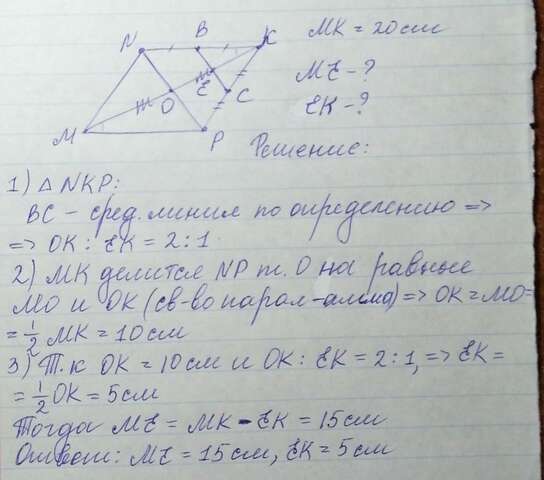 MK = 20см
ME - ?
EK - ?
N B K
E C
O
M P
Решение:
1) △ NKP:
BC - сред. линия по определению =>
=> OK : EK = 2:1
2) MK делится NP т. O на равные
MO и OK (св-во парал-амма) => OK = MO =
= 1/2 MK = 10см
3) Т.к OK = 10см и OK : EK = 2:1, => EK =
= 1/2 OK = 5см
Тогда ME = MK - EK = 15см
Ответ: ME = 15см, EK = 5см